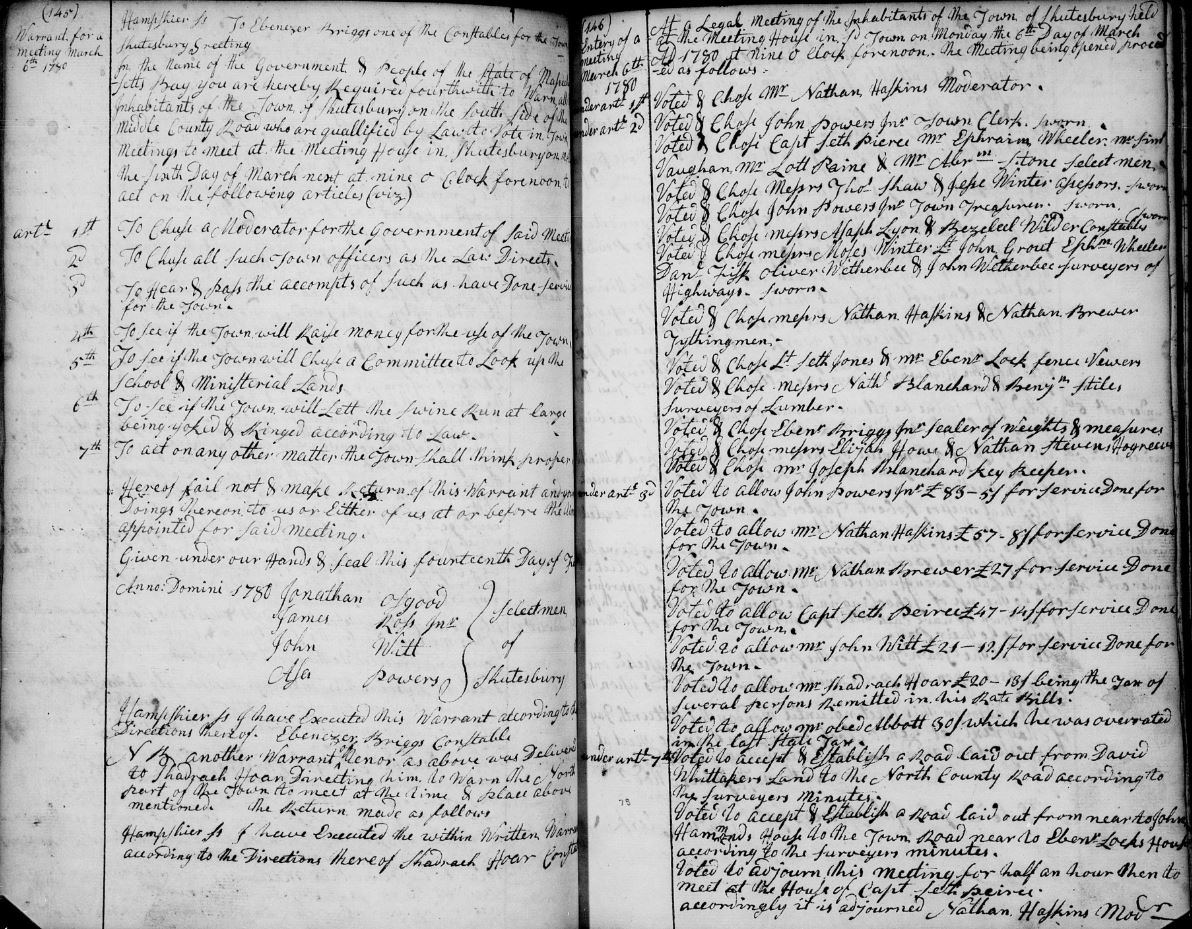 (145)
Warrant for a
meeting March
6th 1780
Hampshier ss To Ebenezer Briggs one of the Constables for the Town
Shutesbury Greeting
In the Name of the Government & People of the State of Massachu
setts Bay you are hereby Required fourthwith to Warn all
Inhabitants of the Town of Shutesbury on the South Side of the
Middle County Road who are quallified by Law to Vote in Town
Meetings to meet at the Meeting House in Shutesbury on
the Sixth Day of March next at nine o Clock forenoon to
act on the following articles (viz)
artl 1st To Chuse a Moderator for the Government of Said Meet
2d To Chuse all such Town officers as the Law Directs
3d To Hear & pass the accompts of such as have Done servic
for the Town.
4th To see if the Town will Raise money for the use of the Town
5th To see if the Town will Chuse a Committee to Look up the
School & Ministerial Lands
6th To see if the Town will Lett the Swine Run at Large
being yoked & Ringed according to Law.
7th To act on any other matter the Town shall think proper
Hereof fail not & make Return of this Warrant and your
Doings thereon to us or Either of us at or before the
appointed for said meeting.
Given under our Hands & seal this fourteenth Day of
Anno: Domini 1780 Jonathan Osgood
James Ross Jnr Selectmen
John Witt of
Asa Powers Shutesbury
Hampshier ss I have Executed this Warrant according to the
Directions thereof. Ebenezer Briggs Constable
N B another Warrant Tenor as above was Deliverd
to Shadrach Hoar Directing him to Warn the North
part of the Town to meet at the time & place above
mentioned. the Return made as follows
Hampshier ss I have Executed the within Written Warran
according to the Directions thereof Shadrach Hoar Consta
(146)
Entery of a
meeting
March 6th
1780
At a Legal Meeting of the Inhabitants of the Town of Shutesbury held
at the Meeting House in sd Town on Monday the 6th Day of March
AD 1780 at Nine o Clock forenoon. The Meeting being opened proceed
-ed as follows :
under artl 1st Voted & Chose Mr Nathan Haskins Moderator.
under artl 2d Voted & Chose John Powers Jnr Town Clerk. sworn.
Voted & Chose Capt Seth Pierce Mr Ephraim Wheeler. Mr
Vaughan, Mr Lott Paine & Mr Abrm Stone Select men.
Voted & Chose Messrs Thos Shaw & Jesse Winter assessors. sworn
Voted & Chose John Powers Jnr Town Treasurer. sworn.
Voted & Chose messrs Asaph Lyon & Bezeleel Wilder Constables sworn
Voted & Chose messrs Moses Winter Lt John Grout Ephm Wheeler
Danl Fisk Oliver Wetherbee & John Wetherbee Surveyers of
Highways. sworn.
Voted & Chose messrs Nathan Haskins & Nathan Brewer
Tythingmen.
Voted & Chose Lt Seth Jones & mr Ebenr Lock fence Vewers
Voted & Chose messrs Nathl Blanchard & Benjm Stiles
Surveyers of Lumber.
Voted & Chose Ebenr Briggs Jnr Sealer of Weights & measures
Voted & Chose messrs Elijah Howe & Nathan Stevens Hogreeve
Voted & Chose mr Joseph Blanchard Key Keeper.
under artl 3d Voted to allow John Powers Jnr £83-5s for service Done for
the Town.
Voted to allow mr Nathan Haskins £57-8s for service Done
for the Town.
Voted to allow mr Nathan Brewer £27 for service Done
for the Town.
Voted to allow Capt Seth Peirce £47-14s for service Done
for the Town.
Voted to allow mr John Witt £21-12s for service Done for
the Town.
Voted to allow mr Shadrach Hoar £20-18s being the Tax of
several persons Remitted in his Rate Bills.
Voted to allow mr obed Abbott 30s which he was overrated
in the last State Tax
under artl 7th Voted to accept & Establish a Road laid out from David
Whittakers Land to the North County Road according to
the surveyers minutes.
Voted to accept & Establish a Road laid out from near to John
Hammonds House to the Town Road near to Ebenr Locks House
according to the surveyers minutes.
Voted to adjourn this meeting for half an hour then to
meet at the House of Capt Seth Peirce.
accordingly it is adjourned Nathan Haskins Modr